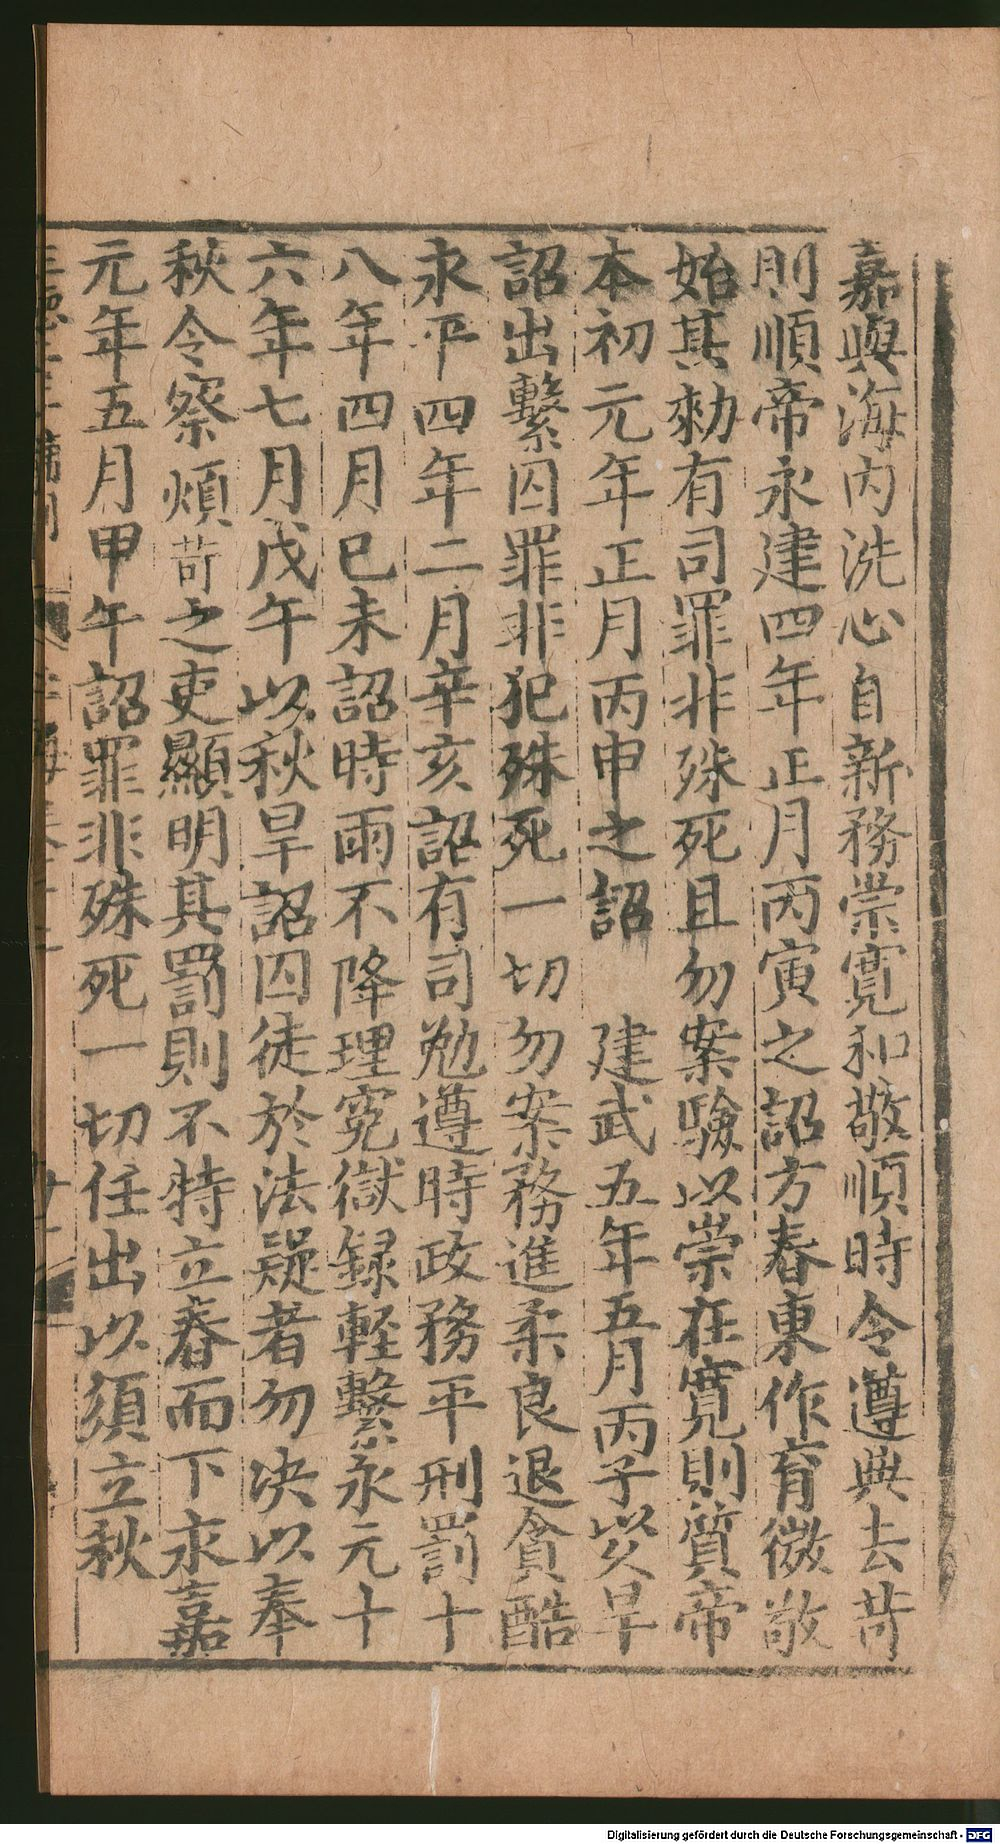 嘉與海内洗心自新務崇寛和敬順時令遵典去苛
則順帝永建四年正月丙寅之詔方春東作育微敬
始其勑有司罪非殊死且勿案驗以崇在寛則質帝
本初元年正月丙申之詔　建武五年五月丙子以旱
詔出繫囚罪非犯殊死一切勿案務進柔良退貪酷
永平四年二月辛亥詔有司勉遵時政務平刑罰十
八年四月己未詔時雨不降理寃獄録軽繫永元十
六年七月戊午以秋旱詔囚徒於法疑者勿决以奉
秋令察煩苛之吏顯明其罰則不特立春而下求嘉
元年五月甲午詔罪非殊死一切任出以須立秋
Digitalisierung gefördert durch die Deutsche Forschungsgemeinschaft - DFG